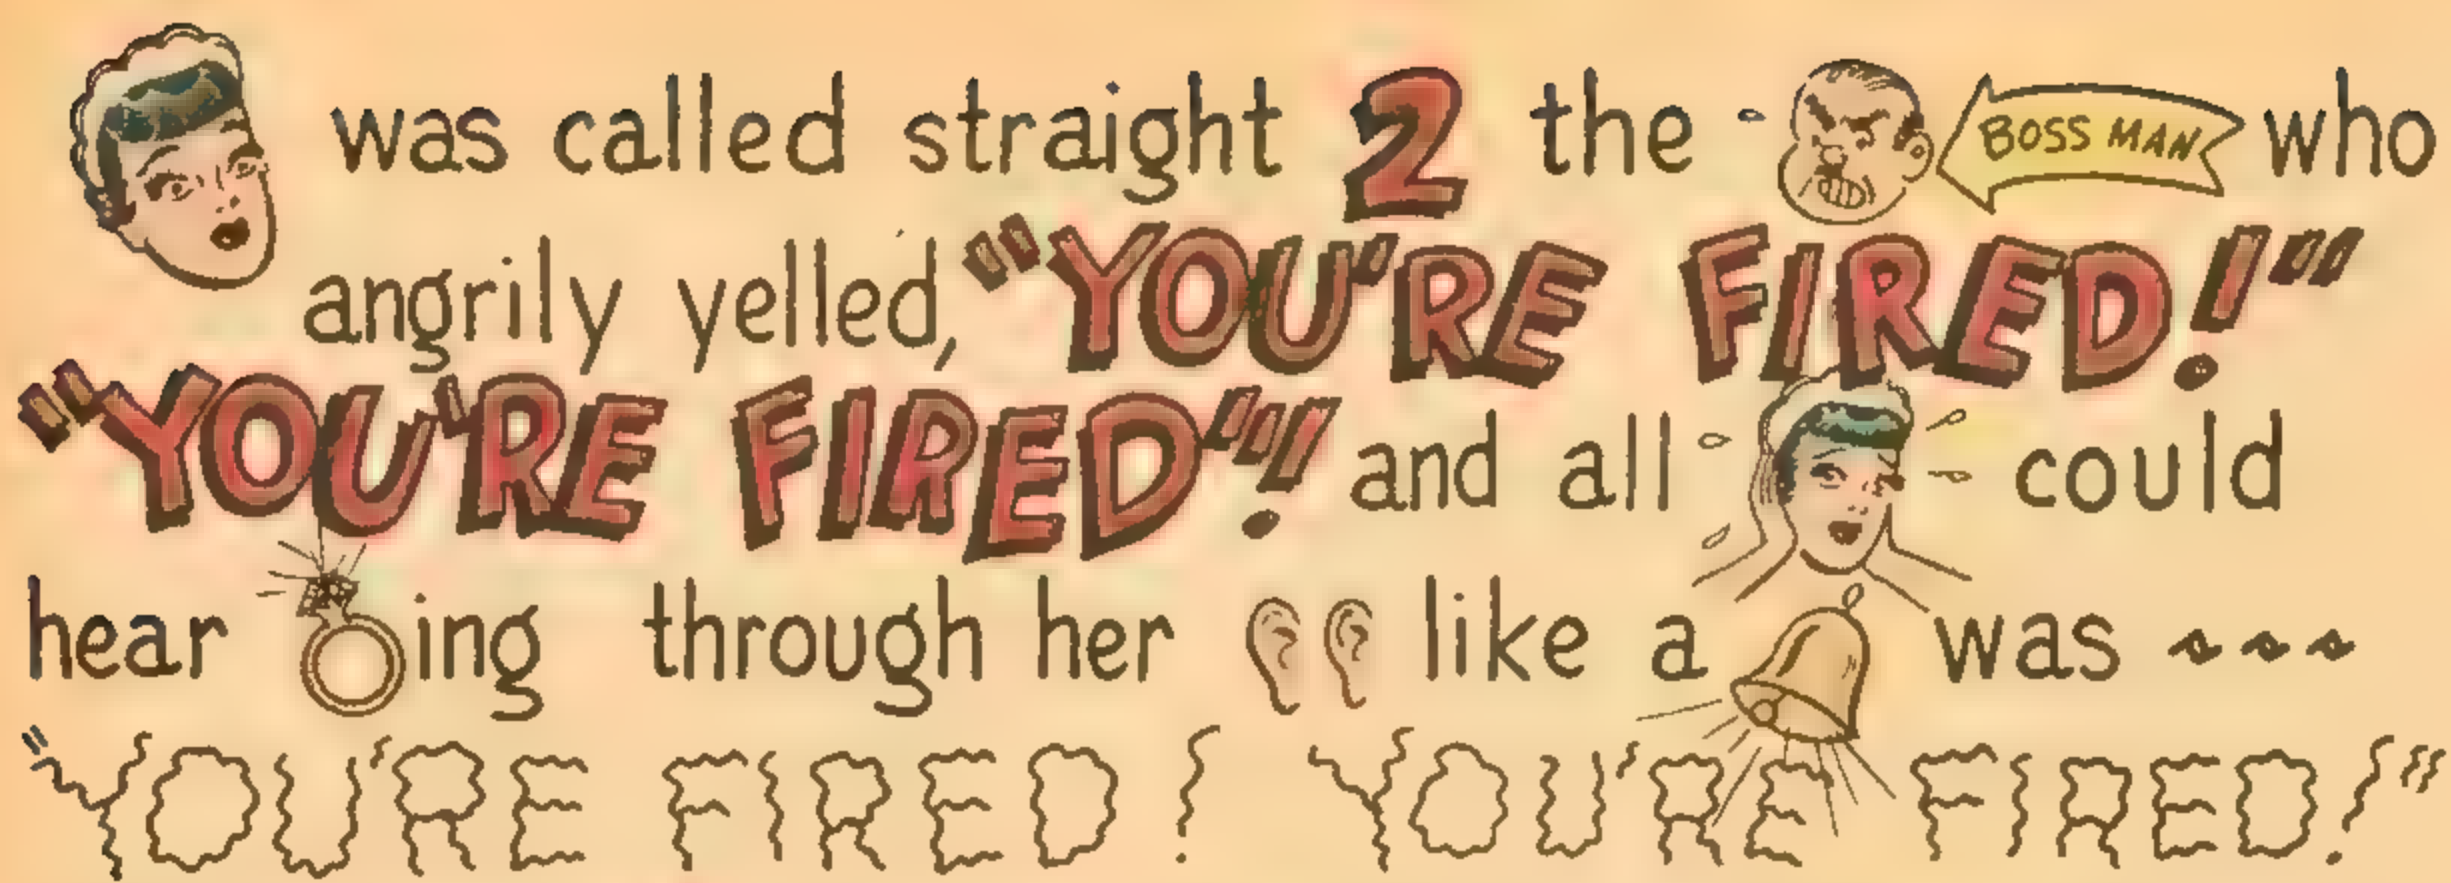 was called straight 2 the BOSS MAN who
angrily yelled, "YOU'RE FIRED!"
"YOU'RE FIRED"! and all could
hear ing through her like a was ---
"YOU'RE FIRED! YOU'RE FIRED!"